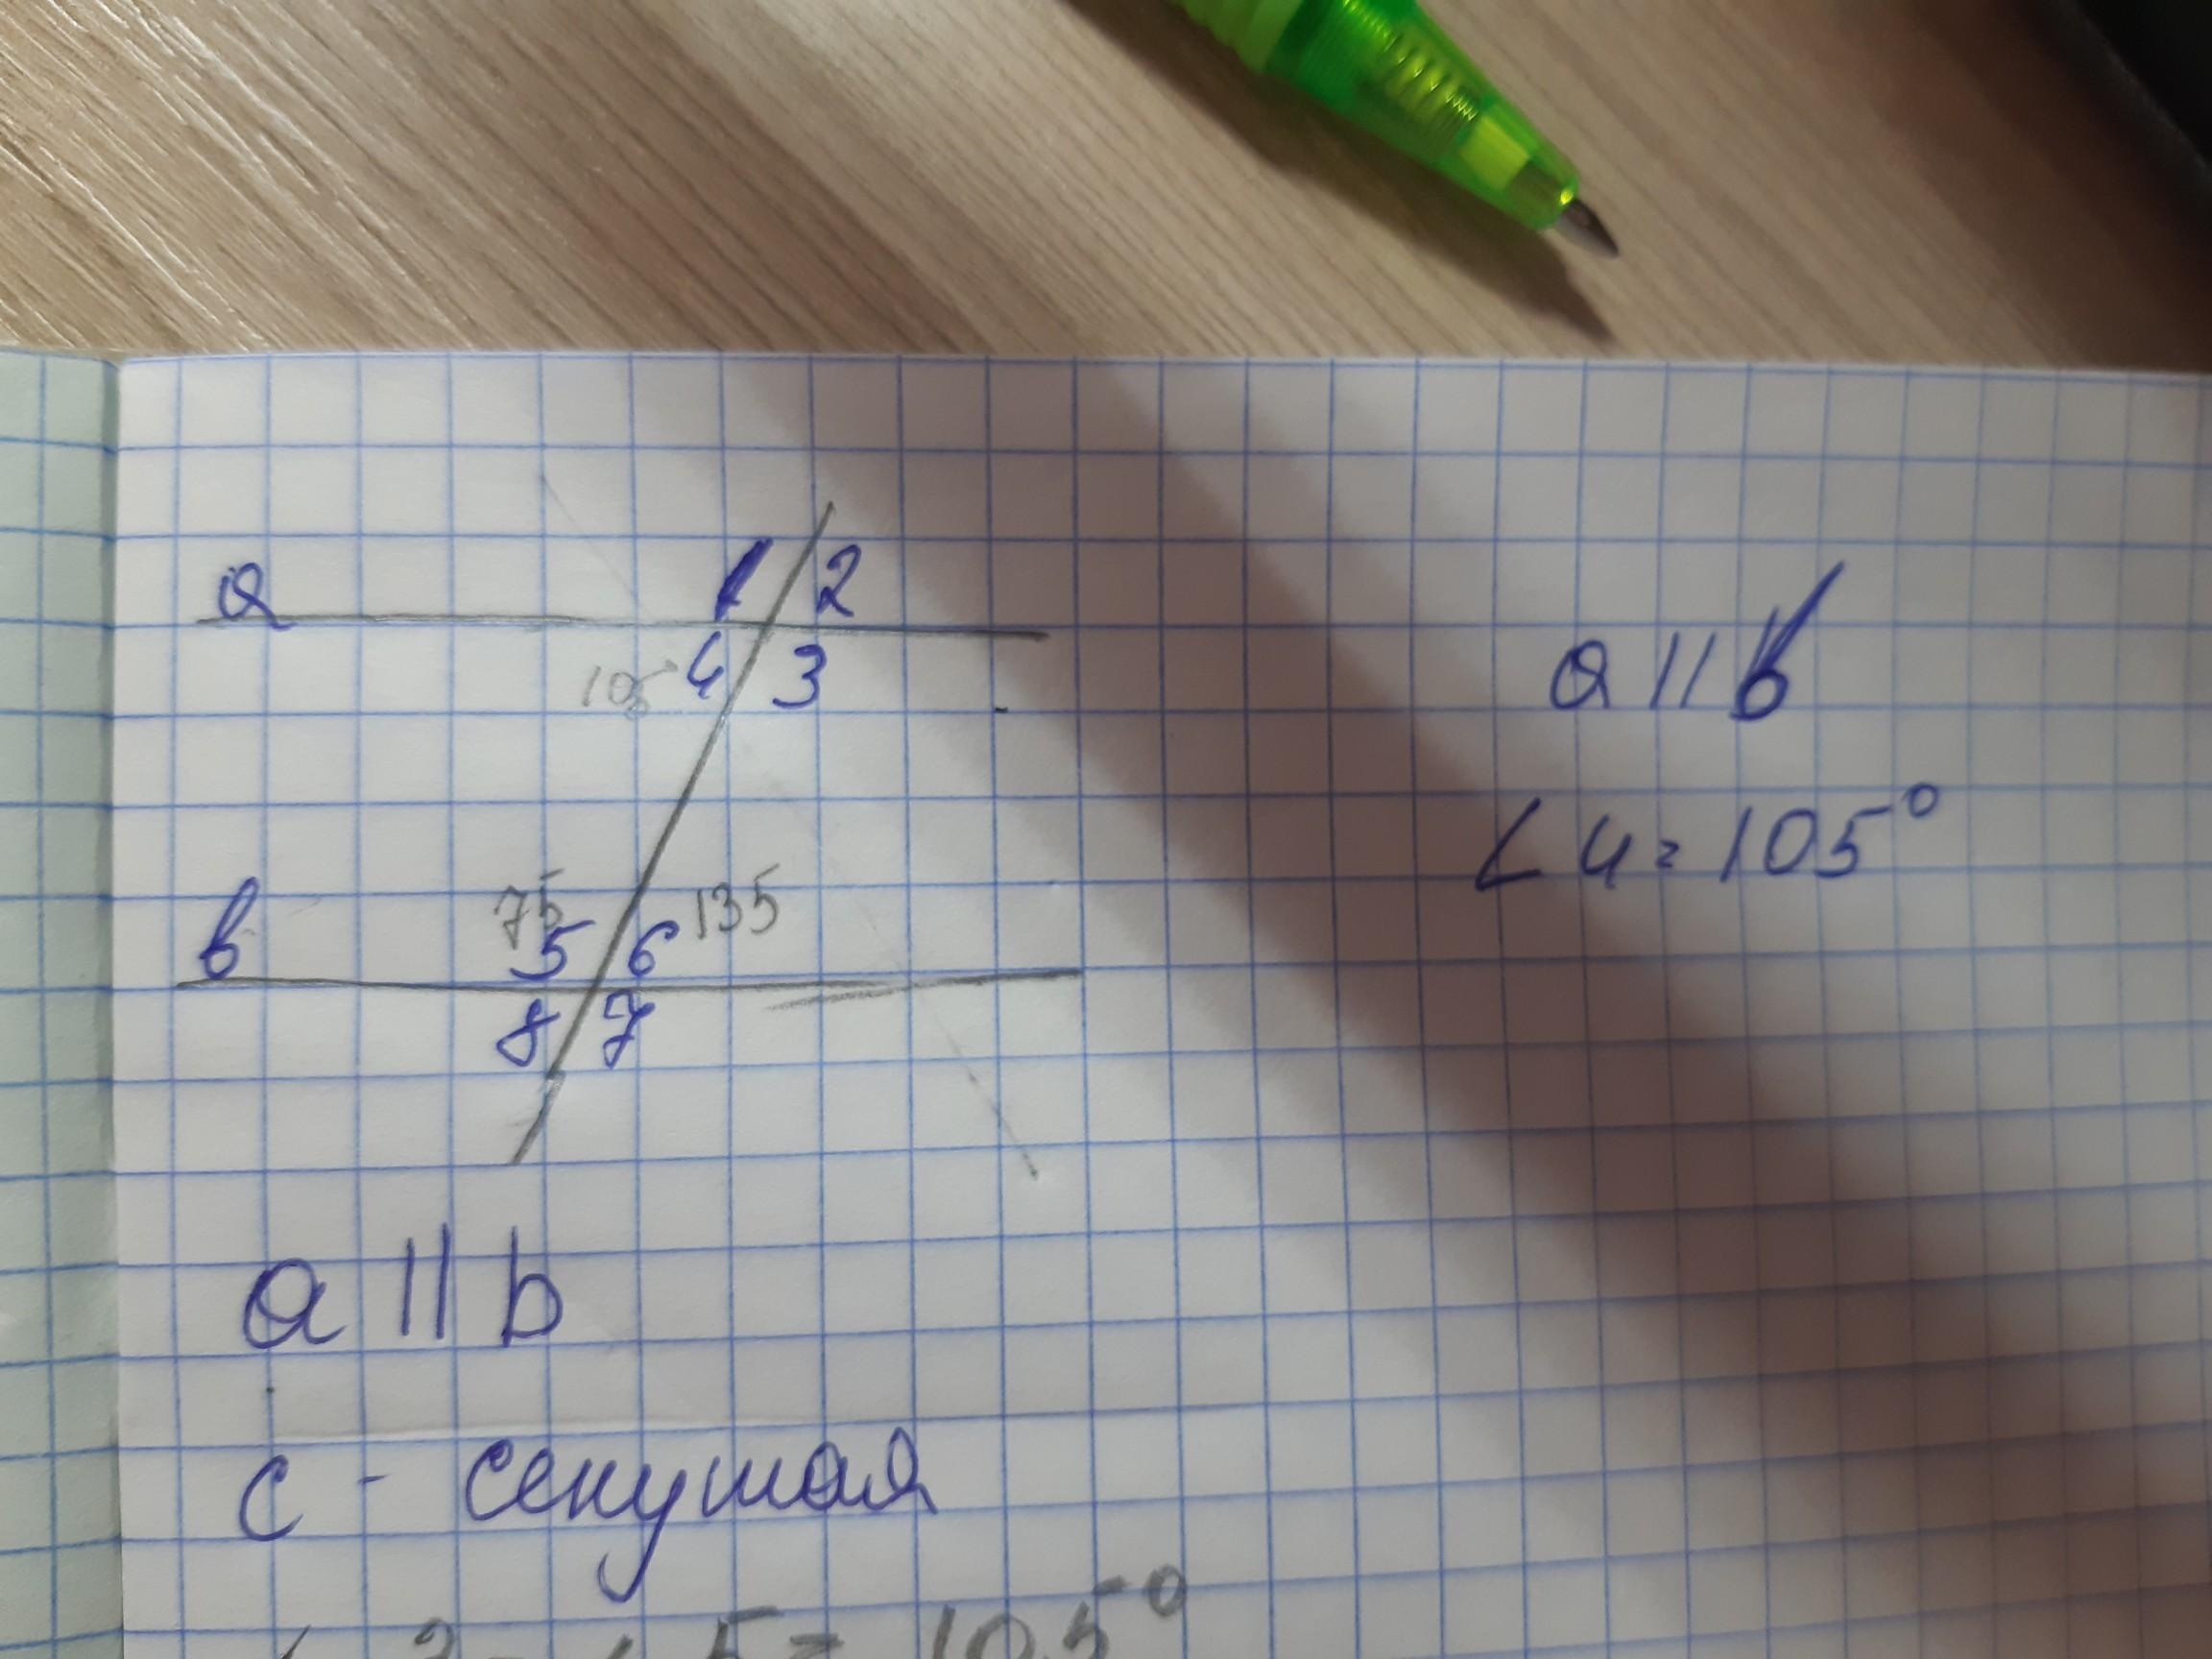 a
1 2
4 3
105
a || b
∠4=105°
75
135
b
5 6
8 7
a || b
c - секущая
5= 105°